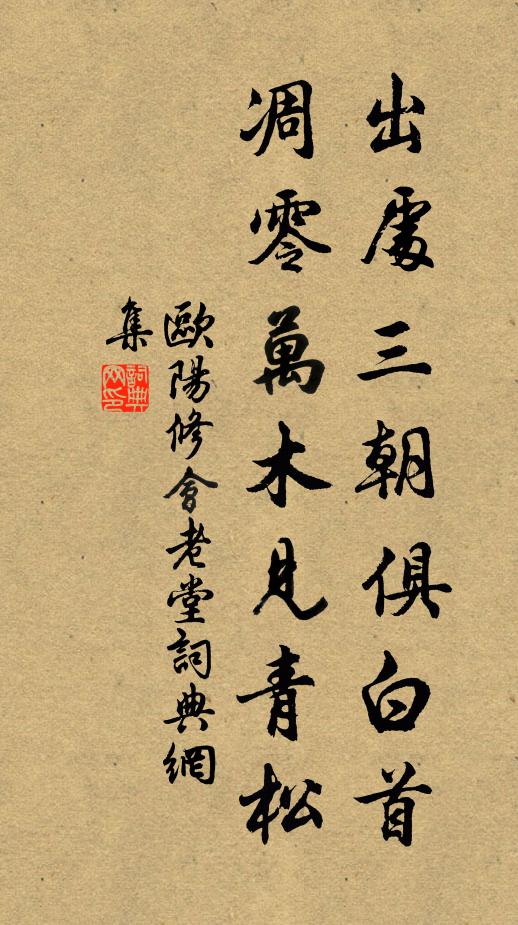 出處三朝俱白首
凋零萬木見青松
歐陽修會老堂詞典網
集
詞典網印